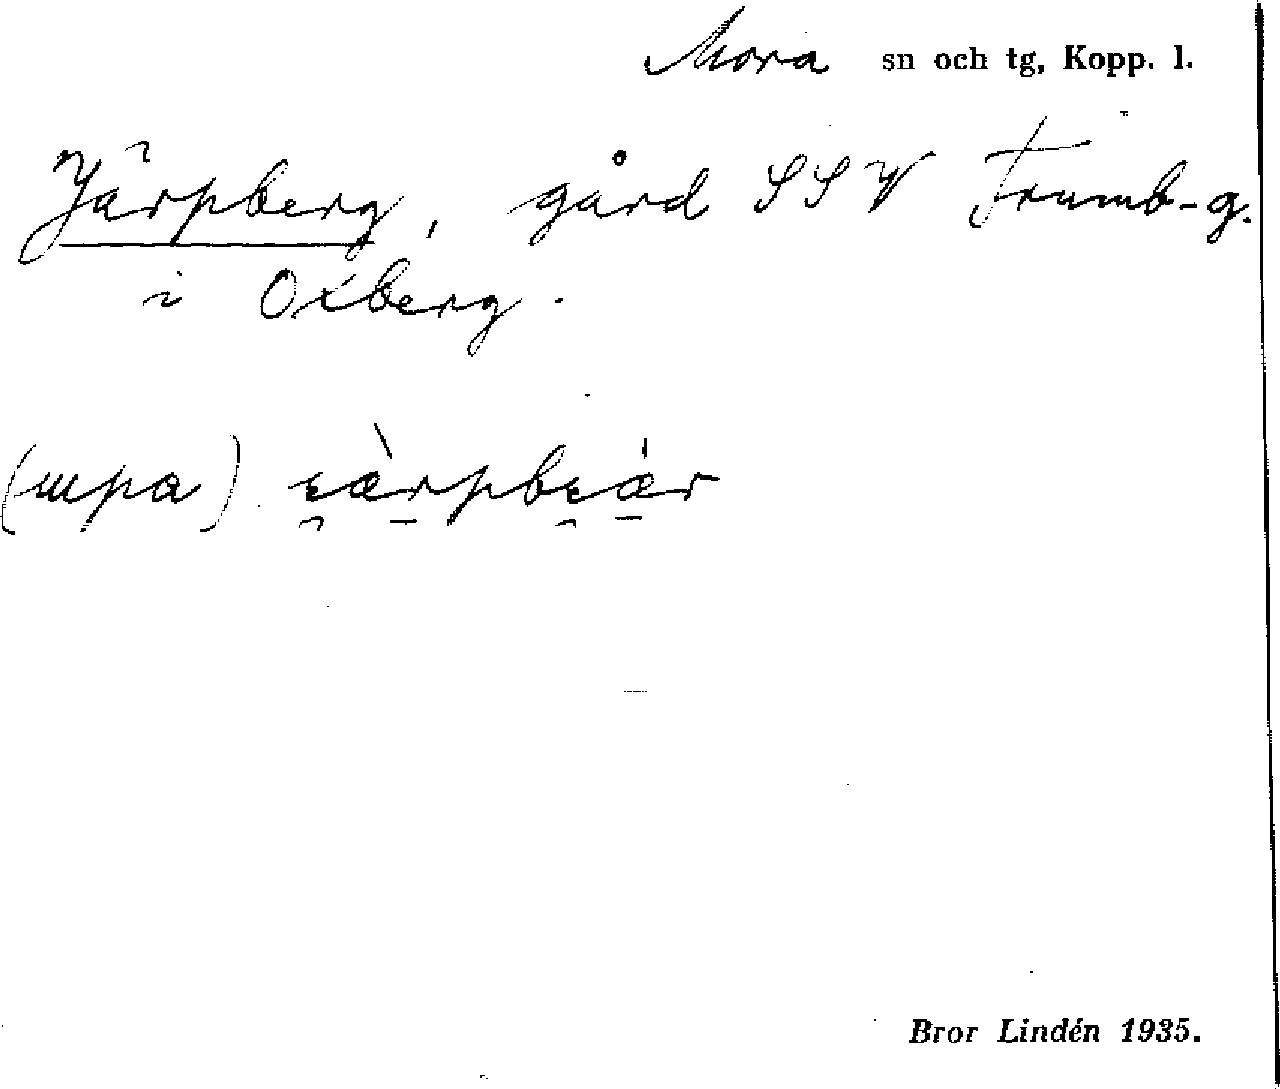 Mora sn och tg, Kopp. l.
Järpberg, gård SSV Trumb-g.
i Oxberg.
(upa)
Bror Lindén 1935.